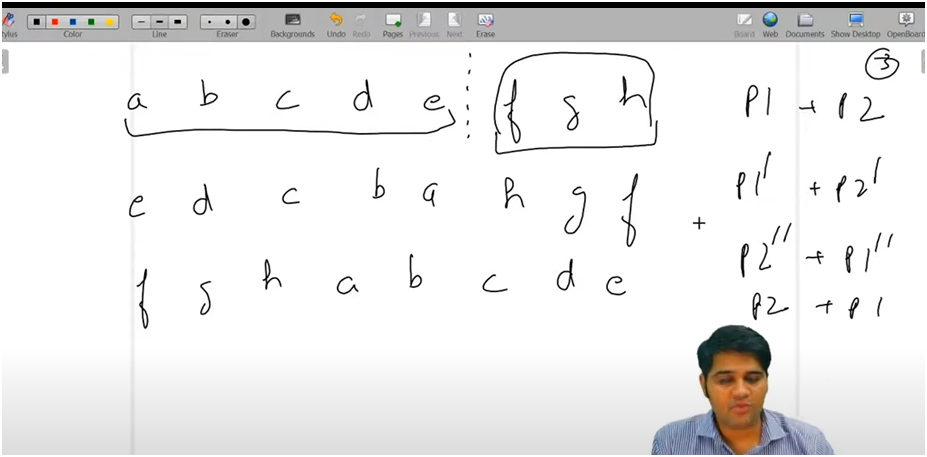 Stylus Color Line Eraser Backgrounds Undo Redo Pages Previous Next Erase Board Web Documents Show Desktop OpenBoard
3
a b c d e f g h P1 + P2
e d c b a h g f + P1' + P2'
f g h a b c d e P2'' + P1''
P2 + P1